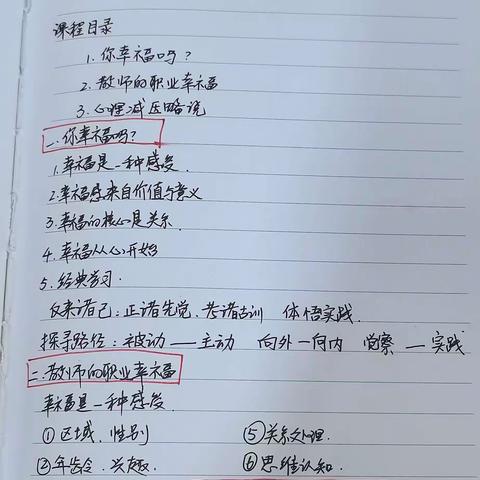 课程目录
1. 你幸福吗？
2. 教师的职业幸福
3. 心理减压略说
一. 你幸福吗？
1. 幸福是一种感受.
2. 幸福感来自价值与意义
3. 幸福的核心是关系.
4. 幸福从心开始
5. 经典学习.
反求诸己：正诸先觉, 考诸古训 体悟实践.
探寻路径：被动——主动 向外—向内 觉察—实践
二. 教师的职业幸福
幸福是一种感受.
①区域、性别 ⑤关系处理.
②年龄、兴趣. ⑥思维认知.